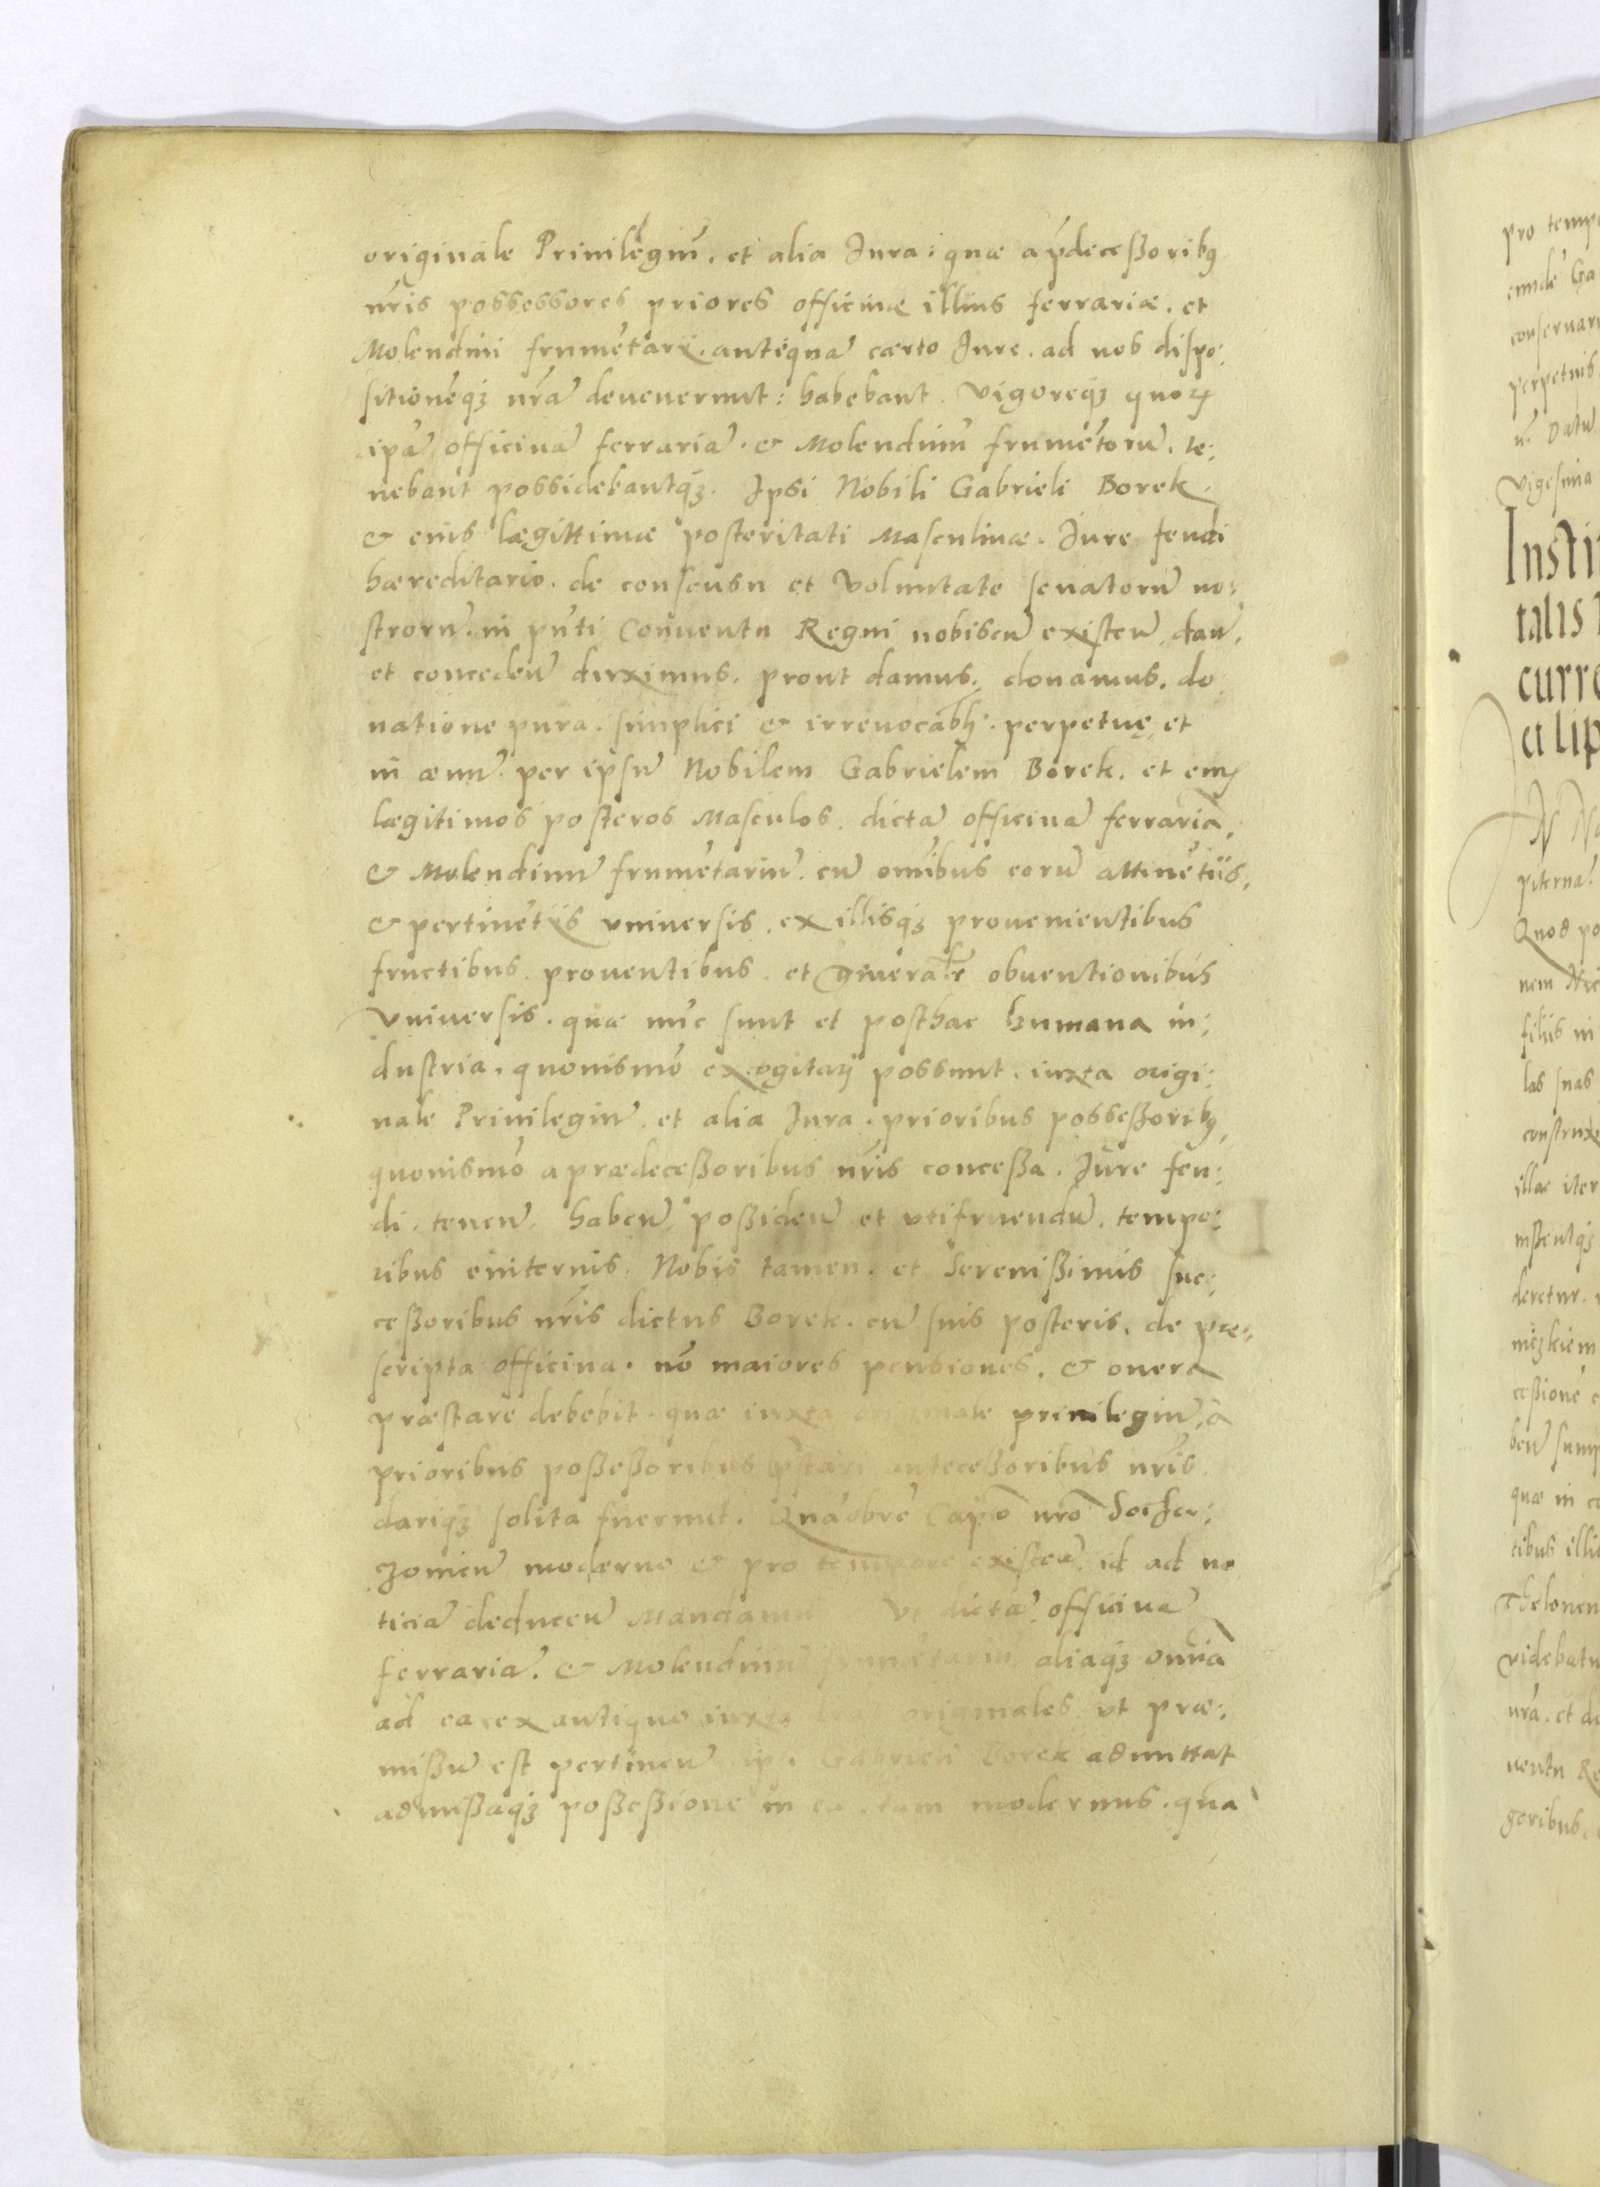 originale Priuilegiū. et alia Jura: quae a p̄decessorib9
nr̄is possessores priores officinae illius ferrariae. et
Molendini frumētarij. anteq̄ua caerto Jure. ad nos dispo:
sitionēq3 nrā deuenerunt: habebant. Vigoreq3 quor₄
ipā officinā ferrariā. & Molendinū frumētorū. te:
nebant possidebantq3. Ipsi Nobili Gabrieli Borek.
& eius laegittimae posteritati Masculinae. Jure feudi
haereditario. de consensu et Voluntate senatorū no:
strorū. in pn̄ti Conuentu Regni nobiscū existeū. daū.
et concedeū duximus. prout damus. donamus. do
natione pura. simplici & irreuocabli. perpetuę et
in aeuū. per ipsū Nobilem Gabrielem Borek. et ei9
laegitimos posteros Masculos. dictā officinā ferrariā.
& Molendinū frumētariū. cū omībus eorū attinētiis.
& pertinētijs vniuersis. ex illisq3 prouenientibus
fructibus. prouentibus. et gn̄eralr̄ obuentionibus
Vniuersis. quae nūc sunt et posthac humana in:
dustria. quouismō excogitarj possunt. iuxta origi:
nale Priuilegiū. et alia Jura. prioribus possessorib9
quouismō a praedecessoribus nr̄is concessa. Jure feu:
di. teneū. habeū. possideū et vtifruendū. tempo:
ribus euiternis. Nobis tamen. et Serenissimis suc:
cessoribus nr̄is dictus Borek. cū suis posteris. de prae:
scripta officina. nō maiores pensiones. & onera
praestare debebit. quae iuxta originale priuilegiū. a
prioribus possessoribus p̄stari antecessoribus nr̄is
dariq3 solita fuerunt. Quāobrē Cap̄o nrō Sochac:
zouieū moderno & pro tempore existeū. id ad no
ticiā deduceū Mandamus Vt dictā officinā
ferrariā. & Molendinū frumētariū aliaq3 omīa
ad ea ex antiquo iuxta originales vt prae:
missū est pertineū ipi Gabrieli Borek admittat
admissaq3 possessione in ea. tam modernus. quā
pro temp
conseruar
perpetuis
Datū
Vigesima
Insti
talis
curre
Quod po
nem Nic
filiis in
las suas
construx
illac iter
deretur.
cessionē
quae in
tibus illi
Theloneu
videbatu
nrā. et de
uentu Re
goribus.